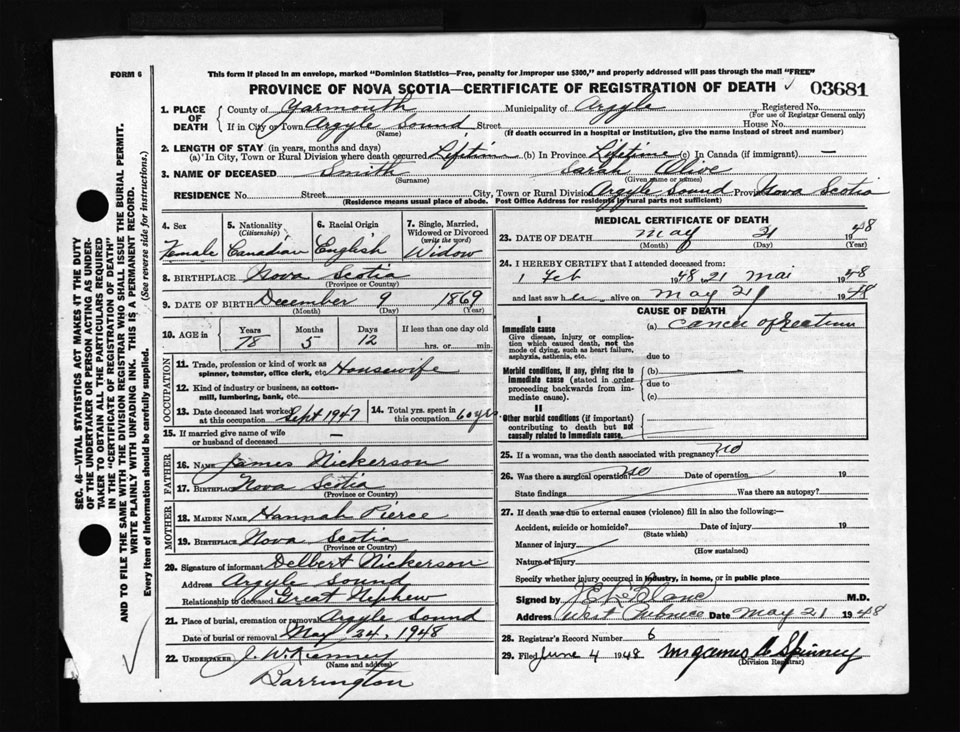 FORM 6
This form if placed in an envelope, marked "Dominion Statistics—Free, penalty for improper use $300," and properly addressed will pass through the mail "FREE"
PROVINCE OF NOVA SCOTIA—CERTIFICATE OF REGISTRATION OF DEATH 03681
1. PLACE OF DEATH
County of Yarmouth Municipality of Argyle Registered No.
(For use of Registrar General only)
If in City or Town Argyle Sound Street House No.
(Name) (If death occurred in a hospital or institution, give the name instead of street and number)
2. LENGTH OF STAY (in years, months and days)
(a) In City, Town or Rural Division where death occurred Lifetim (b) In Province Lifetime (c) In Canada (if immigrant) —
3. NAME OF DECEASED Smith Sarah Olive
(Surname) (Given name or names)
RESIDENCE No. Street City, Town or Rural Division Argyle Sound Province Nova Scotia
(Residence means usual place of abode. Post Office Address for residents in rural parts not sufficient)
4. Sex
Female
5. Nationality
(Citizenship)
Canadian
6. Racial Origin
English
7. Single, Married, Widowed or Divorced
(write the word)
Widow
8. BIRTHPLACE Nova Scotia
(Province or Country)
9. DATE OF BIRTH December 9 1869
(Month) (Day) (Year)
10. AGE in
Years Months Days If less than one day old
78 5 12 hrs. or min.
OCCUPATION
11. Trade, profession or kind of work as Housewife
spinner, teamster, office clerk, etc.
12. Kind of industry or business, as cotton-
mill, lumbering, bank, etc.
13. Date deceased last worked at this occupation Sept 1947
14. Total yrs. spent in this occupation 60 yrs.
15. If married give name of wife
or husband of deceased —
FATHER
16. NAME James Nickerson
17. BIRTHPLACE Nova Scotia
(Province or Country)
MOTHER
18. MAIDEN NAME Hannah Pierce
19. BIRTHPLACE Nova Scotia
(Province or Country)
20. Signature of informant Delbert Nickerson
Address Argyle Sound
Relationship to deceased Great Nephew
21. Place of burial, cremation or removal Argyle Sound
Date of burial or removal May 24, 1948
22. UNDERTAKER J. W. Kenney
(Name and address)
Barrington
MEDICAL CERTIFICATE OF DEATH
23. DATE OF DEATH May 21 1948
(Month) (Day) (Year)
24. I HEREBY CERTIFY that I attended deceased from:
1 Feb 1948, 21 Mai 1948
and last saw her alive on May 21 1948
CAUSE OF DEATH
I
Immediate cause (a) Cancer of rectum
Give disease, injury or complica-
tion which caused death, not the
mode of dying, such as heart failure,
asphyxia, asthenia, etc. due to
Morbid conditions, if any, giving rise to (b)
immediate cause (stated in order due to
proceeding backwards from im-
mediate cause). (c)
II
Other morbid conditions (if important)
contributing to death but not
causally related to immediate cause.
25. If a woman, was the death associated with pregnancy? no
26. Was there a surgical operation? no Date of operation 19
State findings Was there an autopsy?
27. If death was due to external causes (violence) fill in also the following:—
Accident, suicide or homicide? Date of injury 19
(State which)
Manner of injury
(How sustained)
Nature of injury
Specify whether injury occurred in industry, in home, or in public place
Signed by LeBlanc M.D.
Address West Pubnico Date May 21 1948
28. Registrar's Record Number 6
29. Filed June 4 1948 Mrs James Spinney
(Division Registrar)
SEC. 46—VITAL STATISTICS ACT MAKES IT THE DUTY
OF THE UNDERTAKER OR PERSON ACTING AS UNDER-
TAKER TO OBTAIN ALL THE PARTICULARS REQUIRED
IN THE "CERTIFICATE OF REGISTRATION OF DEATH"
AND TO FILE THE SAME WITH THE DIVISION REGISTRAR WHO SHALL ISSUE THE BURIAL PERMIT.
WRITE PLAINLY WITH UNFADING INK. THIS IS A PERMANENT RECORD.
Every item of Information should be carefully supplied. (See reverse side for instructions.)